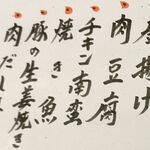 唐揚げ
肉豆腐
チキン南蛮
焼き魚
豚の生姜焼き
肉だ